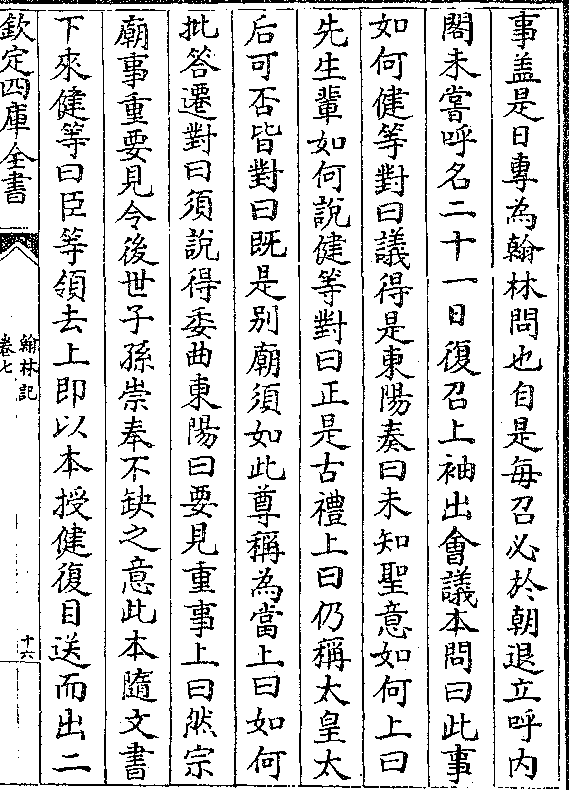 事盖是日專為翰林問也自是每召必於朝退立呼内
閣未嘗呼名二十一日復召上袖出會議本問曰此事
如何健等對曰議得是東陽奏曰未知聖意如何上曰
先生輩如何說健等對曰正是古禮上曰仍稱太皇太
后可否皆對曰既是别廟須如此尊稱為當上曰如何
批答遷對曰須說得委曲東陽曰要見重事上曰然宗
廟事重要見令後世子孫崇奉不缺之意此本隨文書
下來健等曰臣等領去上即以本授健復目送而出二
欽定四庫全書
翰林記
卷七
十六